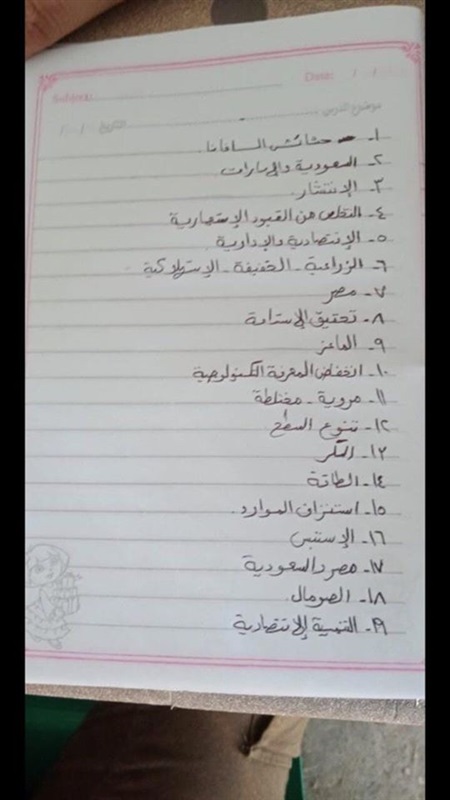 Subject: Date: / /
موضوع الدرس التاريخ / /
١- حشائش السافانا.
٢- السعودية والإمارات.
٣- الإنتشار.
٤- التخلص من القيود الإستعمارية
٥- الإقتصادية والإدارية
٦- الزراعية - الخفيفة - الإستهلاكية
٧- مصر
٨- تحقيق الإستدامة
٩- الماعز
١٠- انخفاض المعرفة التكنولوجية
١١- مروية - مختلطة
١٢- تنوع السطح
١٣- السكر
١٤- الطاقة
١٥- استنزاف الموارد.
١٦- الإستبس
١٧- مصر والسعودية
١٨- الصومال.
١٩- التنمية الإقتصادية